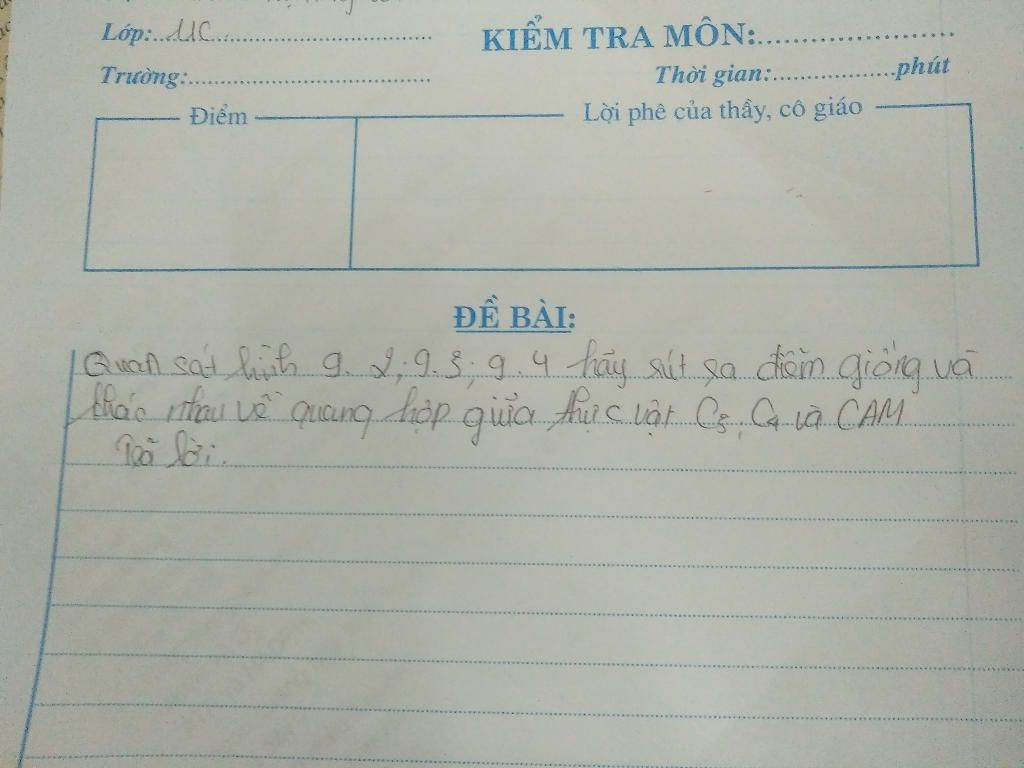 Lớp:...11C...
KIỂM TRA MÔN:.....................
Trường:.................................
Thời gian:..................phút
Điểm
Lời phê của thầy, cô giáo
ĐỀ BÀI:
Quan sát hình 9.2; 9.3; 9.4 hãy rút ra điểm giống và
khác nhau về quang hợp giữa thực vật C3, C4 và CAM
Trả lời.